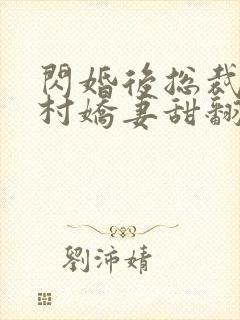 閃婚後總裁
村嬌妻甜翻
劉沛婧